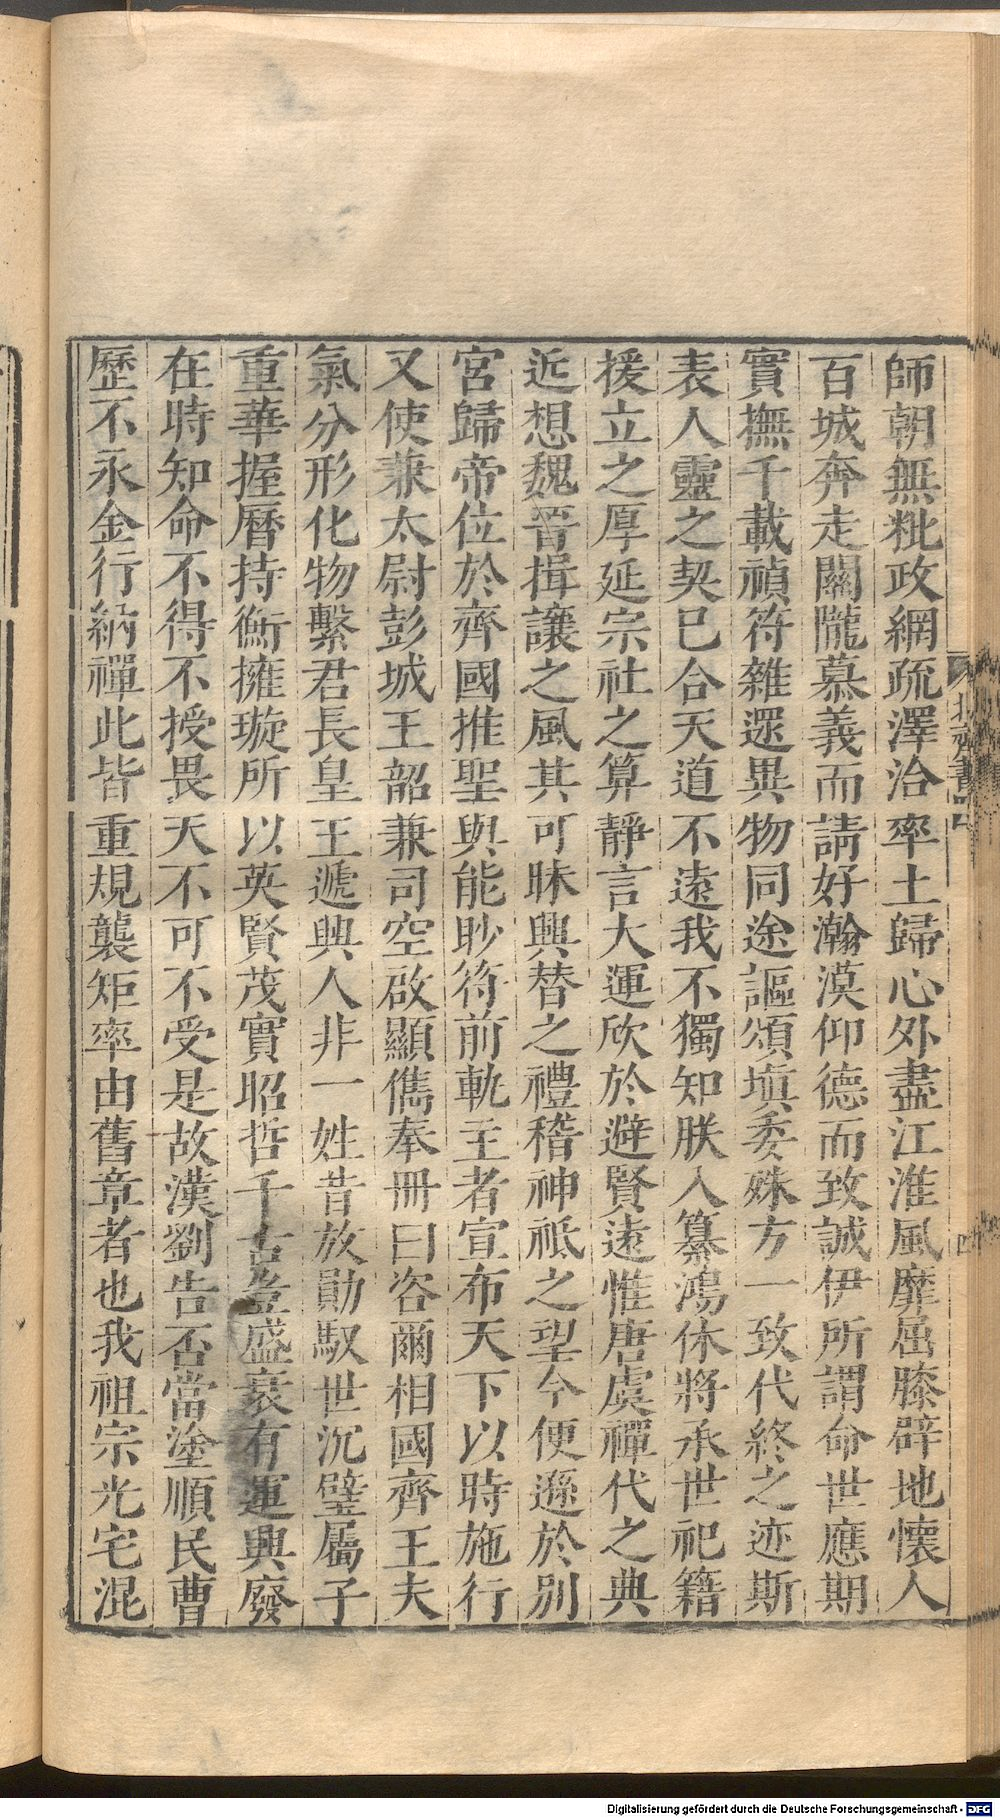 師朝無粃政網疏澤洽率土歸心外盡江淮風靡屈膝辟地懷人
百城奔走關隴慕義而請好瀚漠仰德而致誠伊所謂命世應期
實撫千載禎符雜遝異物同途謳頌塡委殊方一致代終之迹斯
表人靈之契已合天道不遠我不獨知朕入纂鴻休將承世祀籍
援立之厚延宗社之算靜言大運欣於避賢遠惟唐虞禪代之典
近想魏晉揖讓之風其可昧興替之禮稽神祗之望今便遜於別
宮歸帝位於齊國推聖與能眇符前軌主者宣布天下以時施行
又使兼太尉彭城王韶兼司空敬顯儁奉冊曰咨爾相國齊王夫
氣分形化物繫君長皇王遞興人非一姓昔放勛馭世沉璧屬子
重華握曆持衡擁璇所以英賢茂實昭哲千古豈盛衰有運興廢
在時知命不得不授畏天不可不受是故漢劉告否當塗順民曹
歷不永金行納禪此皆重規襲矩率由舊章者也我祖宗光宅混
北齊書
Digitalisierung gefördert durch die Deutsche Forschungsgemeinschaft - DFG